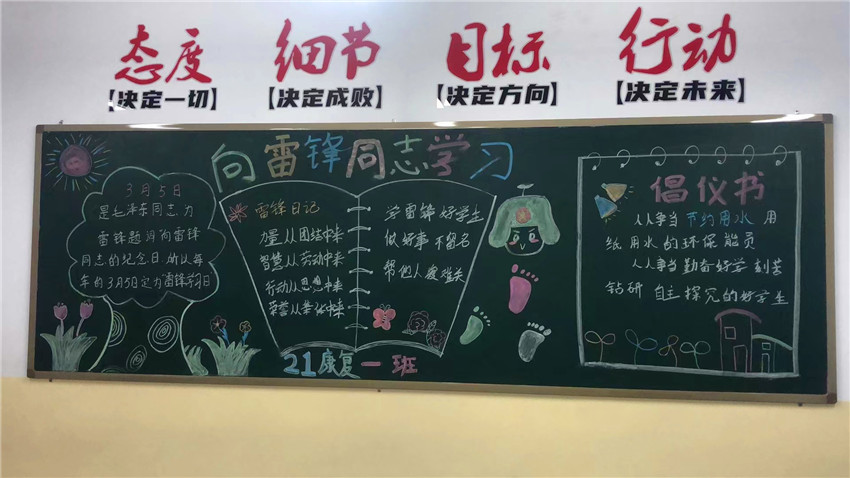 态度
【决定一切】
细节
【决定成败】
目标
【决定方向】
行动
【决定未来】
向雷锋同志学习
3月5日
是毛泽东同志为
雷锋题词向雷锋
同志的纪念日所以每
年的3月5日定为雷锋学习日
雷锋日记
力量从团结中来
智慧从劳动中来
行动从思想中来
荣誉从集体中来
学雷锋好学生
做好事不留名
帮他人度难关
21康复一班
倡仪书
人人争当节约用水用
纸用水的环保能员
人人争当勤奋好学刻苦
钻研自主探究的好学生